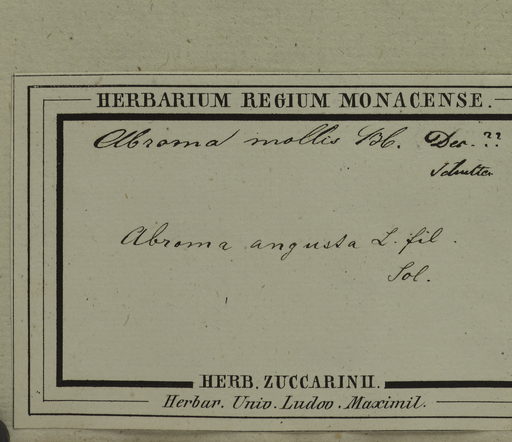 HERBARIUM REGIUM MONACENSE.
Abroma mollis Bl. Dec. ??
Abroma angusta L. fil.
Sol.
HERB. ZUCCARINII.
Herbar. Univ. Ludov. Maximil.